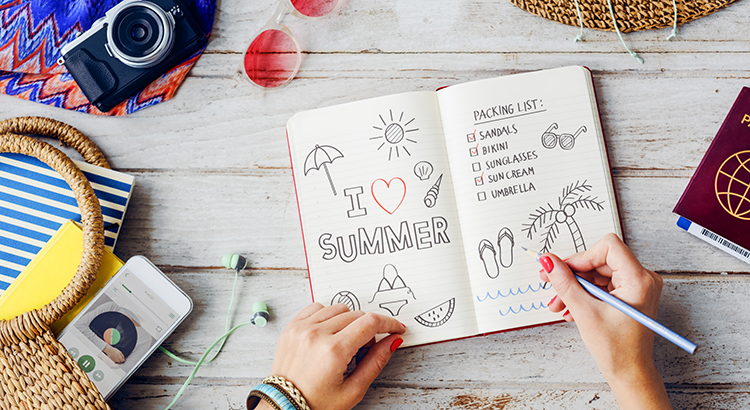 I
SUMMER
PACKING LIST:
SANDALS
BIKINI
SUNGLASSES
SUN CREAM
UMBRELLA
P